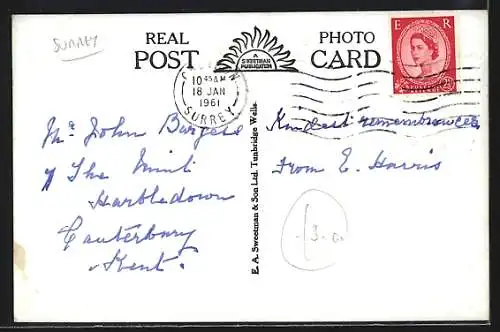 SURREY
REAL PHOTO
POST CARD
A
SWEETMAN
PUBLICATION
E R
2½
10 45 AM
18 JAN
1961
SURREY
Mr John Burgess
The Mint
Harbledown
Canterbury
Kent.
E. A. Sweetman & Son Ltd. Tunbridge Wells.
Kindest remembrances
From E. Harris